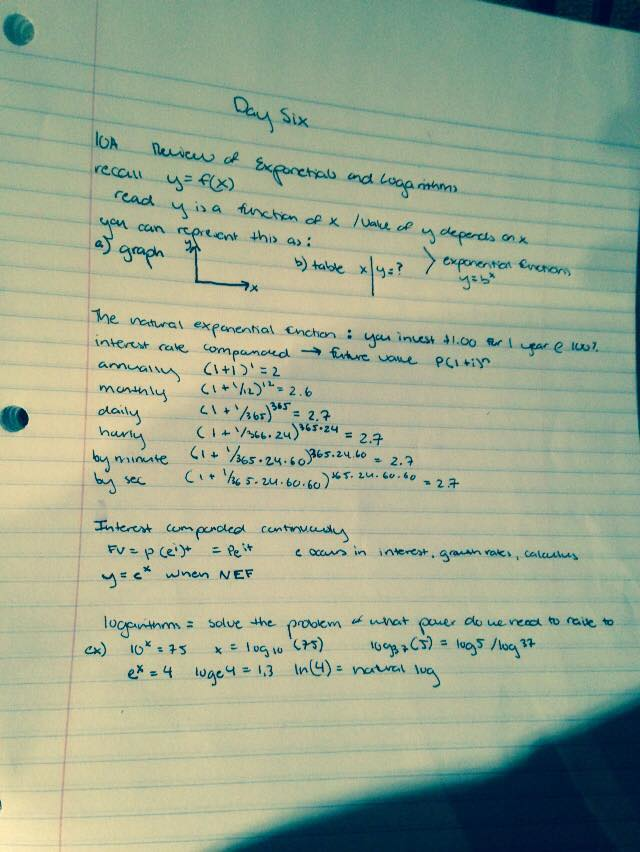 Day Six
10A Review of Exponetials and Logarithms
recall y = f(x)
read y is a function of x / value of y depends on x
you can represent this as:
a) graph y x b) table x | y=? > exponential functions
y=b^x
The natural exponential function : you invest $1.00 for 1 year @ 100%
interest rate compounded → future value P(1+i)^n
annually (1+1)^1 = 2
monthly (1+1/12)^12 = 2.6
daily (1+1/365)^365 = 2.7
hourly (1+1/366·24)^365·24 = 2.7
by minute (1+1/365·24·60)^365·24·60 = 2.7
by sec (1+1/365·24·60·60)^365·24·60·60 = 2.7
Interest compounded continuously
FV = p(e^i)^t = Pe^it e occurs in interest, growth rates, calculus
y = e^x when NEF
logarithm = solve the problem of what power do we need to raise to
ex) 10^x = 75 x = log10 (75) log37(5) = log5/log37
e^x = 4 loge4 = 1.3 ln(4) = natural log